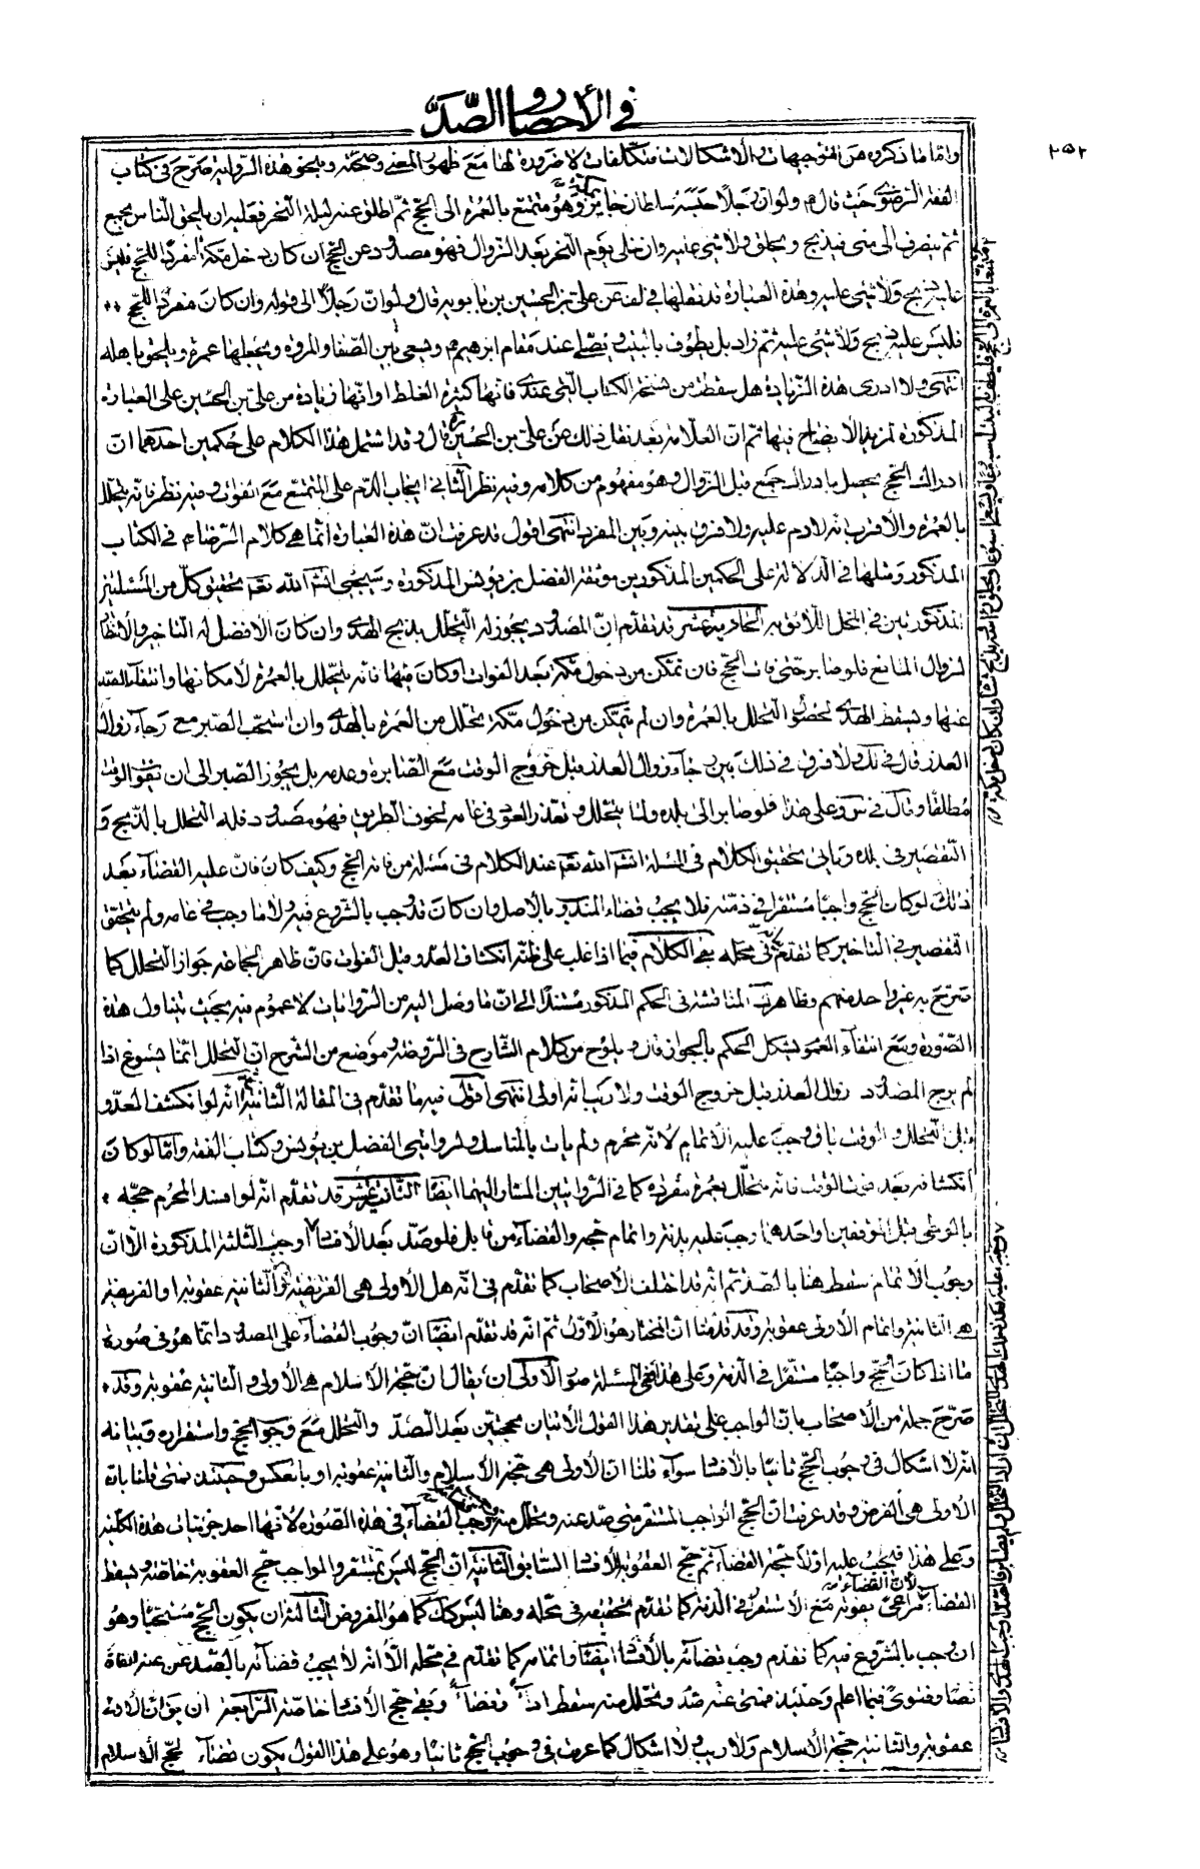 في الأحصار والصّدّ
٢٥٢
وامّا ما ذكروه من التوجيهات والاشكالات فتكلّفات لا ضرورة لها مع ظهور المعنى وصحّته وبنحو هذه الرواية صرّح في كتاب
الفقه الرضوي حيث قال م ولو ان رجلا حبسه سلطان جائر بمكة وهو متمتع بالعمرة الى الحج ثم اطلق عنه ليلة النحر فعليه ان يلحق الناس بجمع
ثم ينصرف الى منى فيذبح ويحلق ولا شئ عليه وان خلى يوم النحر بعد الزوال فهو مصدود عن الحج ان كان دخل مكة مفردا للحج فليس
عليه ذبح ولا شئ عليه وهذه العبارة قد نقلها في لف عن علي بن الحسين بن بابويه قال ولو ان رجلا الى قوله وان كان مفردا للحج
فليس عليه ذبح ولا شئ عليه ثم زاد بل يطوف بالبيت ويصلي عند مقام ابرهيم م ويسعى بين الصفا والمروة ويجعلها عمرة ويلحق باهله
انتهى ولا ادرى هذه الزيادة هل سقطت من نسخة الكتاب التي عندي فانها كثيرة الغلط او انها زيادة من علي بن الحسين على العبارة
المذكورة لمزيد الايضاح فيها ثم ان العلامة بعد نقل ذلك عن علي بن الحسين ره قال وقد اشتمل هذا الكلام على حكمين احدهما ان
ادراك الحج يحصل بادراك جمع قبل الزوال وهو مفهوم من كلامه وفيه نظر الثاني ايجاب الدم على المتمتع مع الفوات وفيه نظر فانه يتحلل
بالعمرة والاقرب انه لا دم عليه ولا فرق بينه وبين المفرد انتهى اقول قد عرفت ان هذه العبارة انما هي كلام الرضا م في الكتاب
المذكور ومثلها في الدلالة على الحكمين المذكورين موثقة الفضل بن يونس المذكورة وسيجئ انشاء الله تعم تحقيق كل من المسئلتين
المذكورتين في المحل اللائق به الحادية عشر قد تقدم ان المصدود يجوز له التحلل بذبح الهدي وان كان الافضل له التاخير والانتظار
لزوال المانع فلو صابر حتى فات الحج فان تمكن من دخول مكة بعد الفوات او كان فيها فانه يتحلل بالعمرة لامكانها وانتفاء الصد
عنها ويسقط الهدي لحصول التحلل بالعمرة وان لم يتمكن من دخول مكة تحلل من العمرة بالهدي وان استحب الصبر مع رجاء زوال
العذر قال في لك ولا فرق في ذلك بين رجاء زوال العذر قبل خروج الوقت مع المصابرة وعدمه بل يجوز الصبر الى ان يفوت الوقت
مطلقا وقال في س وعلى هذا فلو صابر الى بلده ولما يتحلل وتعذر العود في عامه لخوف الطريق فهو مصدود فله التحلل بالذبح و
التقصير في بلده وياتي تحقيق الكلام في المسئلة انشاء الله تعم عند الكلام في مسئلة من فاته الحج وكيف كان فان عليه القضاء بعد
ذلك لو كان الحج واجبا مستقرا في ذمته فلا يجب قضاء المندوب بالاصل وان كان قد وجب بالشروع فيه ولا ما وجب في عامه ولم يتحقق
التقصير في التاخير كما تقدم في محله بقي الكلام فيما اذا غلب على ظنه انكشاف العدو قبل الفوات فان ظاهر الجماعة جواز التحلل كما
صرح به غير واحد منهم وظاهر المناقشة في الحكم المذكور مستندا الى ان ما وصل اليه من الروايات لا عموم فيه بحيث يتناول هذه
الصورة ومع انتفاء العموم يشكل الحكم بالجواز قال ويلوح من كلام الشارح في الروضة وموضع من الشرح ان التحلل انما يسوغ اذا
لم يرج المصدود زوال العذر قبل خروج الوقت ولا ريب انه اولى انتهى اقول فيه ما تقدم في المقالة الثانية انه لو انكشف العدو
قبل التحلل والوقت باق وجب عليه الاتمام لانه محرم ولم يات بالمناسك ولروايتي الفضل بن يونس وكتاب الفقه واما لو كان
انكشافه بعد فوت الوقت فانه يتحلل بعمرة مفردة كما في الروايتين المشار اليهما ايضا الثانية عشر قد تقدم انه لو افسد المحرم حجه
بالوطي قبل الموقفين او احدهما وجب عليه بدنة واتمام حجه والقضاء من قابل فلو صد بعد الافساد وجب الثلثة المذكورة الا ان
وجوب الاتمام سقط هنا بالصد ثم انه قد اختلف الاصحاب كما تقدم في انه هل الاولى هي الفريضة والثانية عقوبة او الفريضة
هي الثانية واتمام الاولى عقوبة وقد قدمنا ان المختار هو الاول ثم انه قد تقدم ايضا ان وجوب القضاء على المصدود انما هو في صورة
ما اذا كان الحج واجبا مستقرا في الذمة وعلى هذا ففي المسئلة صور الاولى ان يقال ان حجة الاسلام هي الاولى والثانية عقوبة وقد
صرح جملة من الاصحاب بان الواجب على تقدير هذا القول الاتيان بحجتين بعد الصد والتحلل مع وجوب الحج واستقراره وبيانه
انه لا اشكال في وجوب الحج ثانيا بالافساد سواء قلنا ان الاولى هي حجة الاسلام والثانية عقوبة او بالعكس وحينئذ فمتى قلنا بان
الاولى هي الفرض وقد عرفت ان الحج الواجب المستقر متى صد عنه وتحلل منه وجب القضاء في هذه الصورة لانها احد جزئيات هذه الكلية
وعلى هذا فيجب عليه اولا حجة القضاء ثم حج العقوبة للافساد السابق الثانية ان الحج ليس بمستقر والواجب حج العقوبة خاصة ويسقط
القضاء لان القضاء مراعى بفوته مع الاستقرار في الذمة كما تقدم تحقيقه في محله وهنا ليس كك كما هو المفروض الثالثة ان يكون الحج مستحبا وهو
ان وجب بالشروع فيه كما تقدم وجب قضائه بالافساد ايضا واتمامه كما تقدم في محله الا انه لا يجب قضائه بالصد عن عنه اتفاقا
نصا وفتوى فيما اعلم وحينئذ فمتى عنه صد وتحلل منه سقط اداء وقضاء وبقي حج الافساد خاصة الرابعة ان يق ان الاولى
عقوبة والثانية حجة الاسلام ولا ريب ولا اشكال كما عرفت في وجوب الحج ثانيا وهو على هذا القول يكون قضاء لحج الاسلام